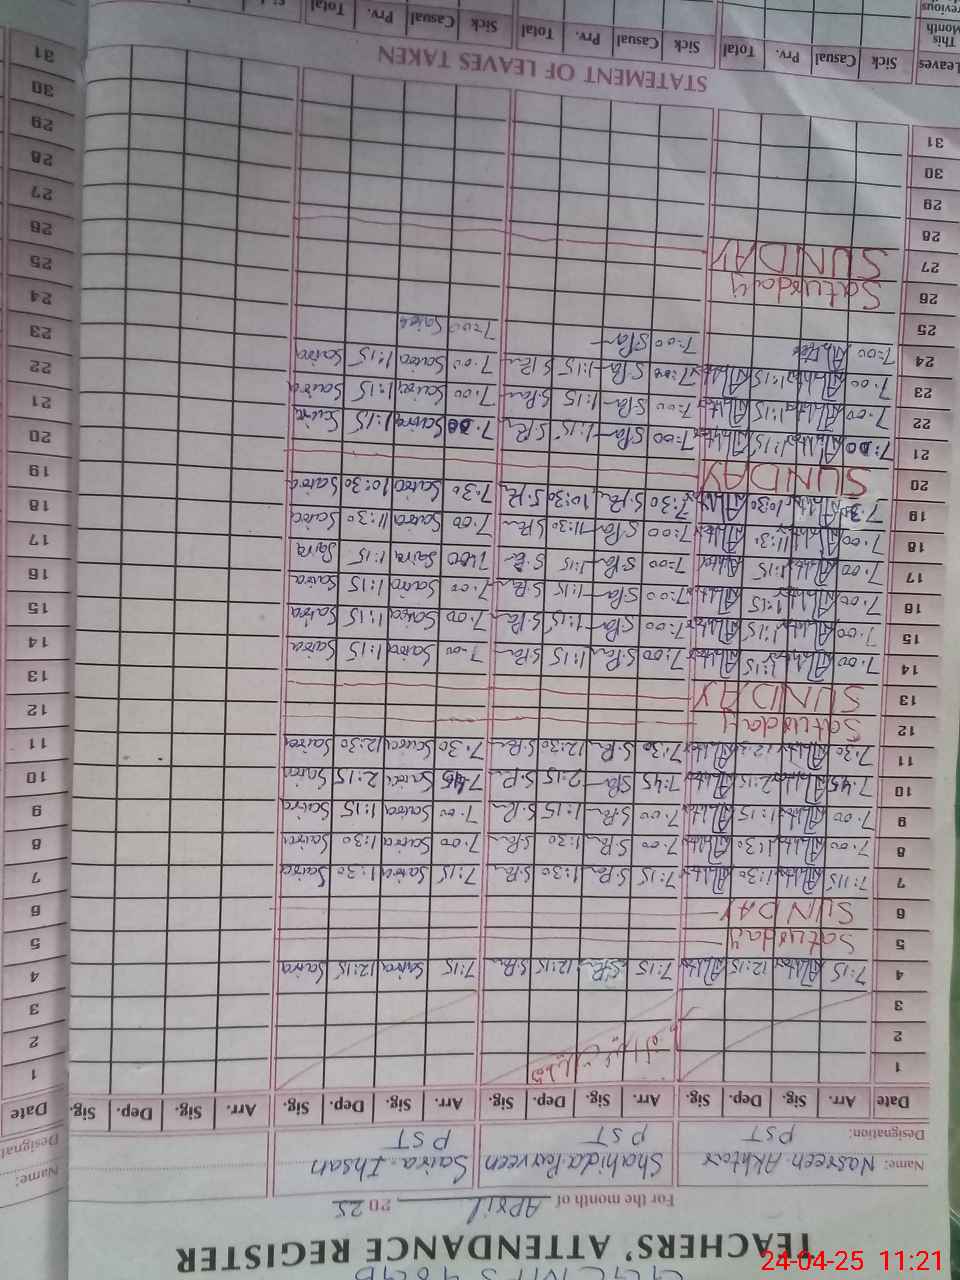 TEACHERS' ATTENDANCE REGISTER
For the month of April 2025
Name: Nasreen Akhtar Shahida Parveen Saira Ihsan
Designation: PST PST PST
Date Arr. Sig. Dep. Sig. Arr. Sig. Dep. Sig. Arr. Sig. Dep. Sig. Arr. Sig. Dep. Sig.
1
2
3
4 7:15 Akhtar 12:15 Akhtar 7:15 S.Pa 12:15 S.Pa 7:15 Saira 12:15 Saira
5 Saturday
6 SUNDAY
7 7:15 Akhtar 1:30 Akhtar 7:15 S.Pa 1:30 S.Pa 7:15 Saira 1:30 Saira
8 7:00 Akhtar 1:30 Akhtar 7:00 S.Pa 1:30 S.Pa 7:00 Saira 1:30 Saira
9 7:00 Akhtar 1:15 Akhtar 7:00 S.Pa 1:15 S.Pa 7:00 Saira 1:15 Saira
10 7:45 Akhtar 2:15 Akhtar 7:45 S.Pa 2:15 S.Pa 7:45 Saira 2:15 Saira
11 7:30 Akhtar 12:30 Akhtar 7:30 S.Pa 12:30 S.Pa 7:30 Saira 12:30 Saira
12 Saturday
13 SUNDAY
14 7:00 Akhtar 1:15 Akhtar 7:00 S.Pa 1:15 S.Pa 7:00 Saira 1:15 Saira
15 7:00 Akhtar 1:15 Akhtar 7:00 S.Pa 1:15 S.Pa 7:00 Saira 1:15 Saira
16 7:00 Akhtar 1:15 Akhtar 7:00 S.Pa 1:15 S.Pa 7:00 Saira 1:15 Saira
17 7:00 Akhtar 1:15 Akhtar 7:00 S.Pa 1:15 S.Pa 7:00 Saira 1:15 Saira
18 7:00 Akhtar 11:30 Akhtar 7:00 S.Pa 11:30 S.Pa 7:00 Saira 11:30 Saira
19 7:30 Akhtar 10:30 Akhtar 7:30 S.Pa 10:30 S.Pa 7:30 Saira 10:30 Saira
20 SUNDAY
21 7:00 Akhtar 1:15 Akhtar 7:00 S.Pa 1:15 S.Pa 7:00 Saira 1:15 Saira
22 7:00 Akhtar 1:15 Akhtar 7:00 S.Pa 1:15 S.Pa 7:00 Saira 1:15 Saira
23 7:00 Akhtar 1:15 Akhtar 7:00 S.Pa 1:15 S.Pa 7:00 Saira 1:15 Saira
24 7:00 Akhtar 7:00 S.Pa 7:00 Saira
25
26 Saturday
27 SUNDAY
28
29
30
31
STATEMENT OF LEAVES TAKEN
Leaves Sick Casual Prv. Total Sick Casual Prv. Total Sick Casual Prv. Total
This Month
Previous
Name:
Designat
Date
1
2
3
4
5
6
7
8
9
10
11
12
13
14
15
16
17
18
19
20
21
22
23
24
25
26
27
28
29
30
31
24-04-25 11:21